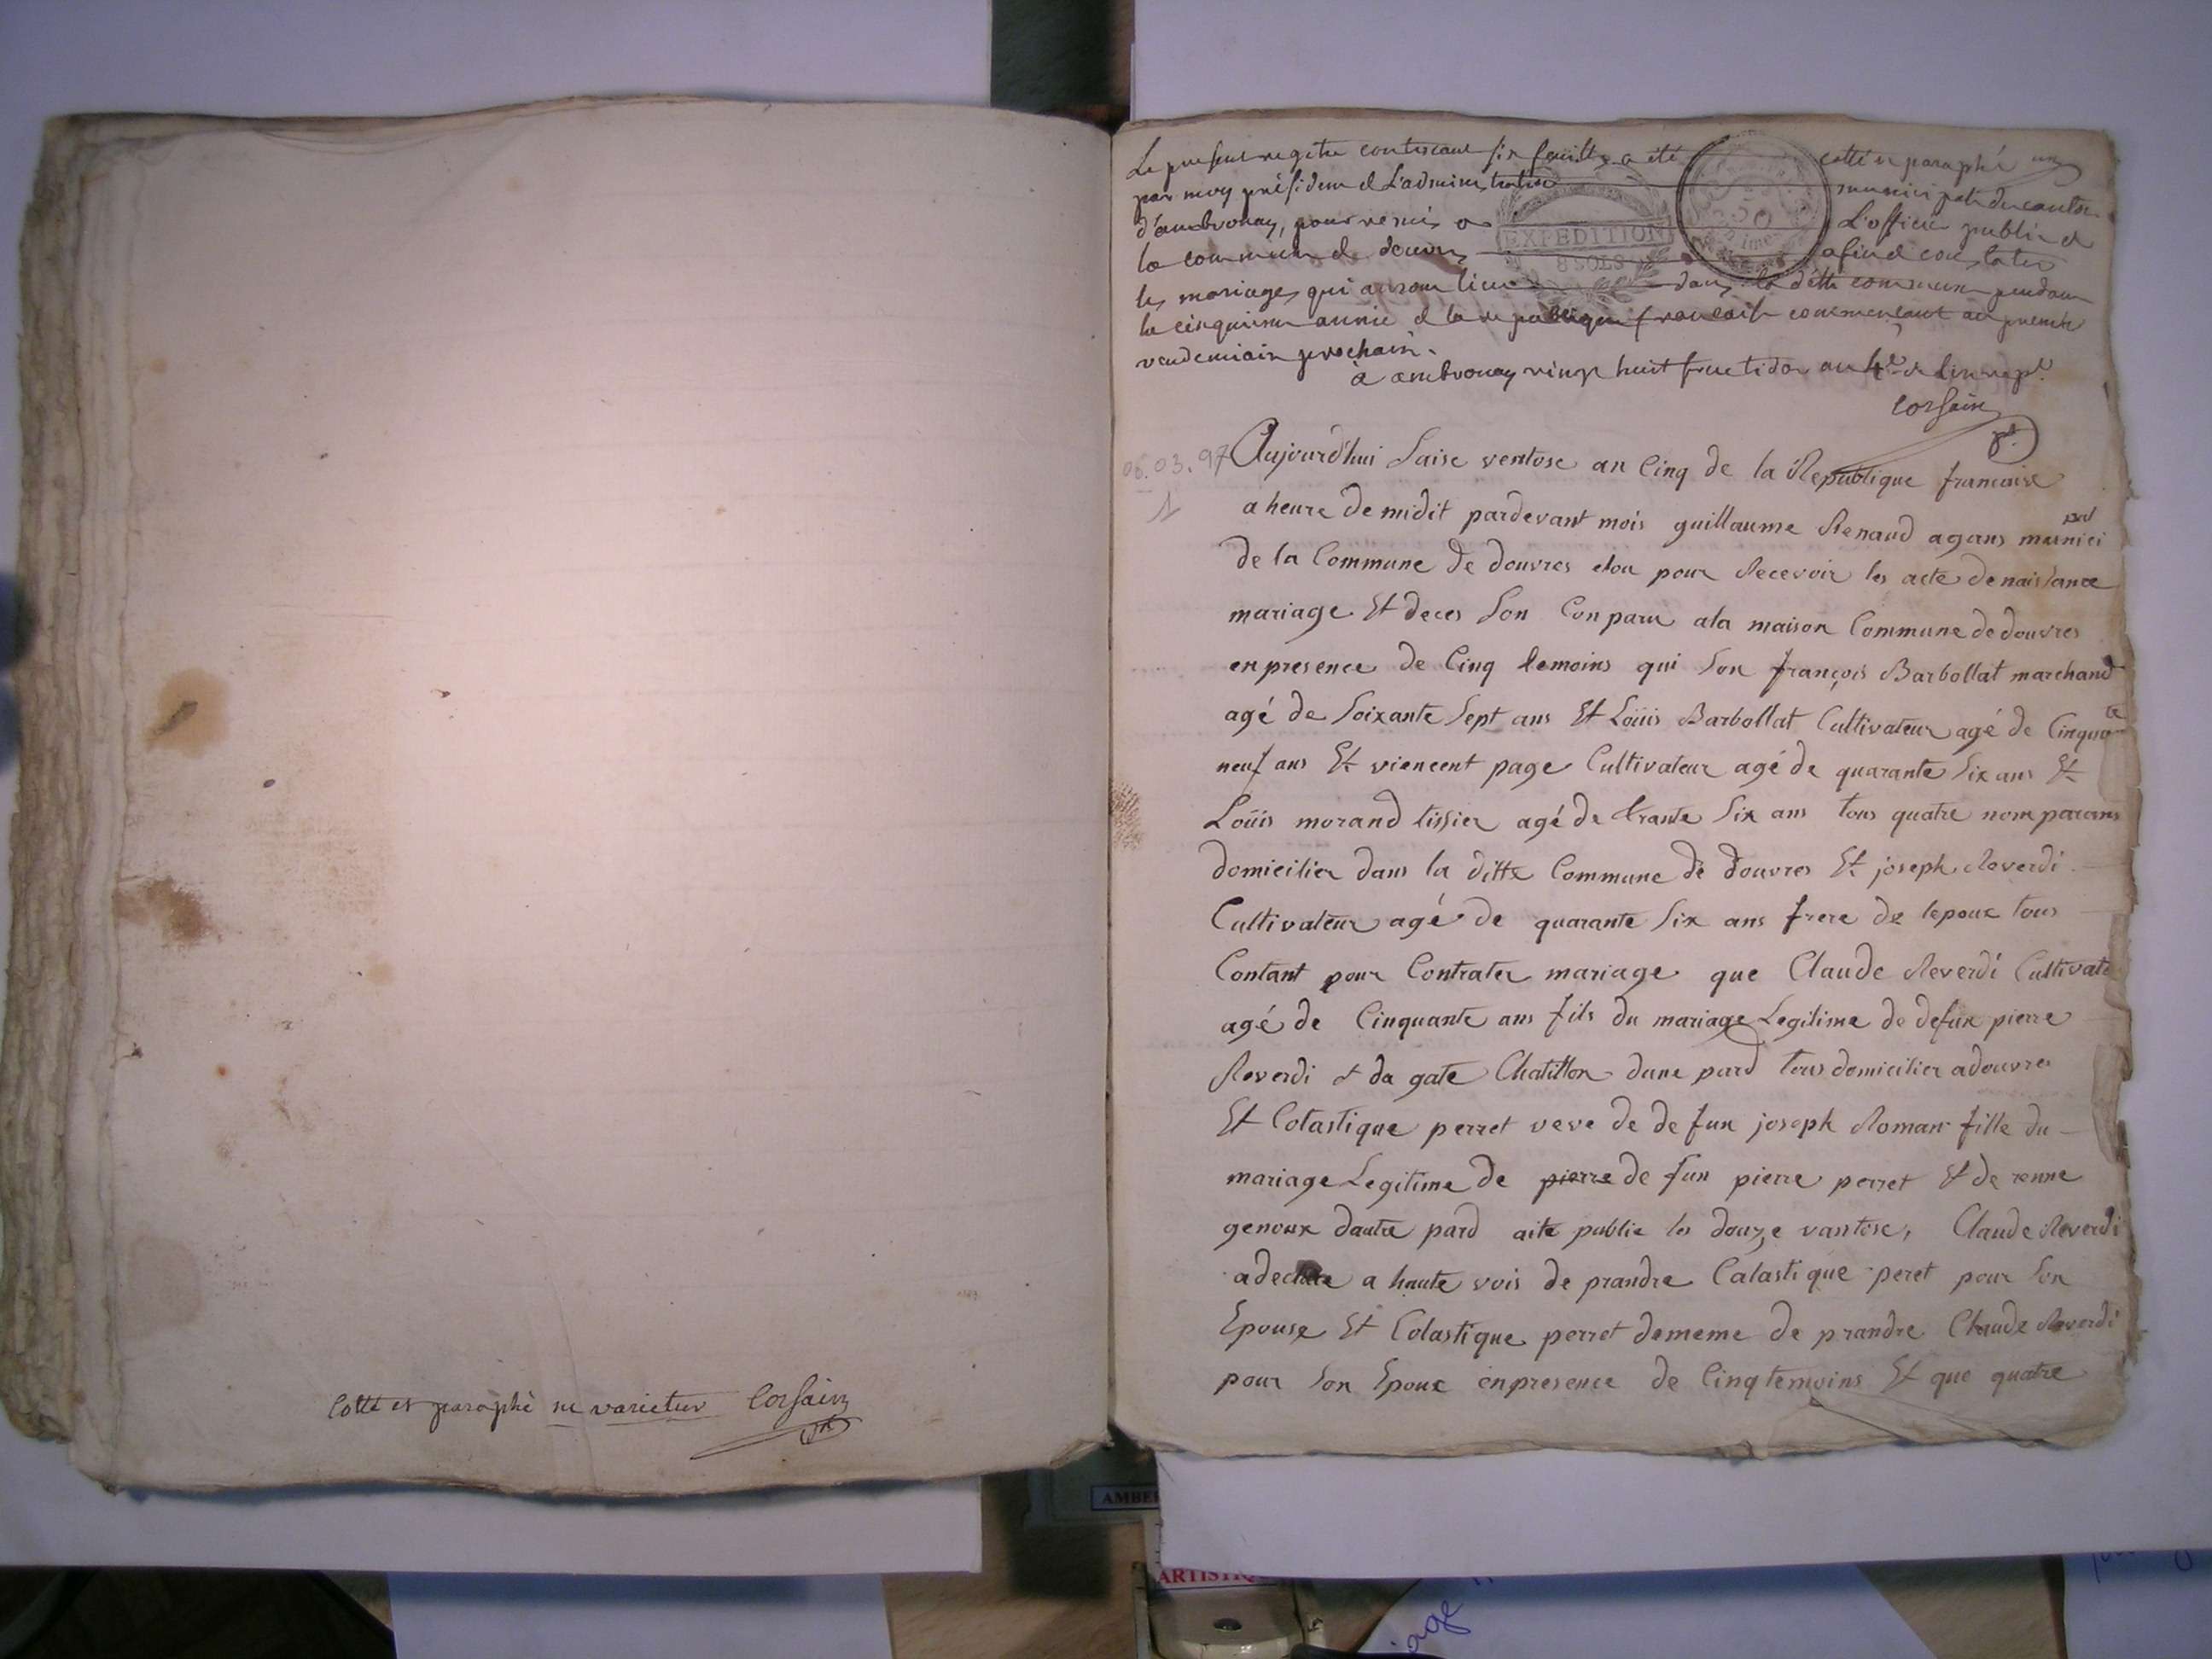 Cotté et paraphé ne varietur Corsain
Le present registre contenant six feuillets a été cotté et paraphé
par moy président de L'administration municipale du canton
d'ambronay, pour servir a L'officier public de
la commune de douvres afin de constater
les mariages qui auront lieu dans la ditte commune pendant
la cinquieme année de la republique francaise commencant au premier
vendemiaire prochain.
à ambronay vingt huit fructidor an 4e de l'ere repe
Corsain
EXPEDITION
8 SOLS
50
06.03.97
1
Aujourd'hui Saise ventose an Cinq de la Republique francaise
a heure de midit pardevant mois guillaume Renaud agans municipal
de la Commune de douvres elou pour Recevoir les acte de naissance
mariage Et deces Son Conparu ala maison Commune de douvres
en presence de Cinq temoins qui Son françois Barbollat marchand
agé de Soixante Sept ans Et Loüis Barbollat Cultivateur agé de Cinquante
neuf ans Et viencent page Cultivateur agé de quarante Six ans Et
Loüis morand tissier agé de trante Six ans tous quatre nom parans
domicilier dans la ditte Commune de douvres Et joseph Reverdi
Cultivateur agé de quarante Six ans frere de lepoux tous
Contant pour Contrater mariage que Claude Reverdi Cultivate
agé de Cinquante ans fils du mariage Legitime de defun pierre
Reverdi et da gate Chatillon dune pard tous domicilier adouvres
Et Colastique perret veve de de fun joseph Roman fille du
mariage Legitime de pierre de fun pierre perret Et de renne
genoux dautre pard aite publie les douze vantose, Claude Reverdi
adeclare a haute vois de prandre Calastique peret pour Son
Epouse Et Colastique perret dememe de prandre Claude Reverdi
pour Son Epoux enpresence de Cinq temoins Et que quatre
AMBE
ARTISTIQ
age